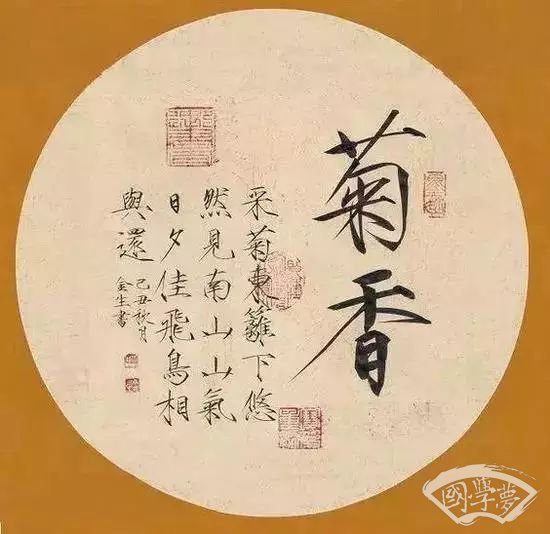 菊香
采菊東籬下悠
然見南山山氣
日夕佳飛鳥相
與還
己丑秋月
金生書
國學夢